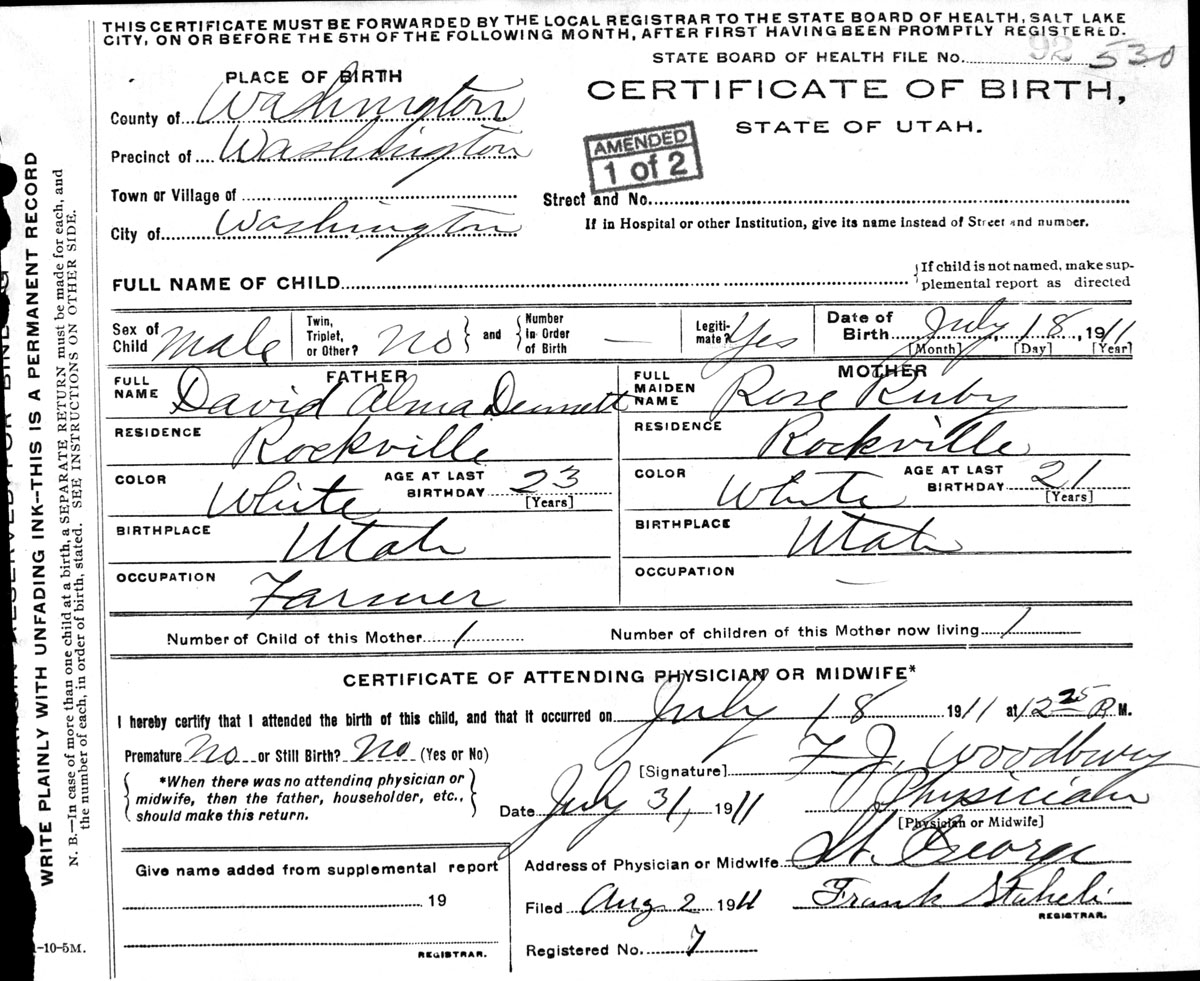 THIS CERTIFICATE MUST BE FORWARDED BY THE LOCAL REGISTRAR TO THE STATE BOARD OF HEALTH, SALT LAKE
CITY, ON OR BEFORE THE 5TH OF THE FOLLOWING MONTH, AFTER FIRST HAVING BEEN PROMPTLY REGISTERED.
STATE BOARD OF HEALTH FILE No. 92 530
PLACE OF BIRTH
CERTIFICATE OF BIRTH,
STATE OF UTAH.
County of Washington
Precinct of Washington
AMENDED
1 of 2
Town or Village of
Street and No.
City of Washington
If in Hospital or other Institution, give its name instead of Street and number.
FULL NAME OF CHILD
{If child is not named, make sup-
plemental report as directed
Sex of Child Male
Twin, Triplet, or Other? No } and { Number in Order of Birth —
Legiti-mate? Yes
Date of Birth July 18, 1911
[Month] [Day] [Year]
FATHER
FULL NAME David Alma Dennett
MOTHER
FULL MAIDEN NAME Rose Ruby
RESIDENCE Rockville
RESIDENCE Rockville
COLOR White AGE AT LAST BIRTHDAY 23 [Years]
COLOR White AGE AT LAST BIRTHDAY 21 [Years]
BIRTHPLACE Utah
BIRTHPLACE Utah
OCCUPATION Farmer
OCCUPATION —
Number of Child of this Mother 1
Number of children of this Mother now living 1
CERTIFICATE OF ATTENDING PHYSICIAN OR MIDWIFE*
I hereby certify that I attended the birth of this child, and that it occurred on July 18 1911 at 12 25 P. M.
Premature No or Still Birth? No (Yes or No)
[Signature] F. J. Woodbury
*When there was no attending physician or
midwife, then the father, householder, etc.,
should make this return.
Date July 31, 1911
Physician
[Physician or Midwife]
Address of Physician or Midwife St. George
Give name added from supplemental report
19
REGISTRAR.
Filed Aug 2 1911 Frank Staheli
REGISTRAR.
Registered No. 7
WRITE PLAINLY WITH UNFADING INK--THIS IS A PERMANENT RECORD
N. B.—In case of more than one child at a birth, a SEPARATE RETURN must be made for each, and
the number of each, in order of birth, stated. SEE INSTRUCTIONS ON OTHER SIDE.
-10-5M.